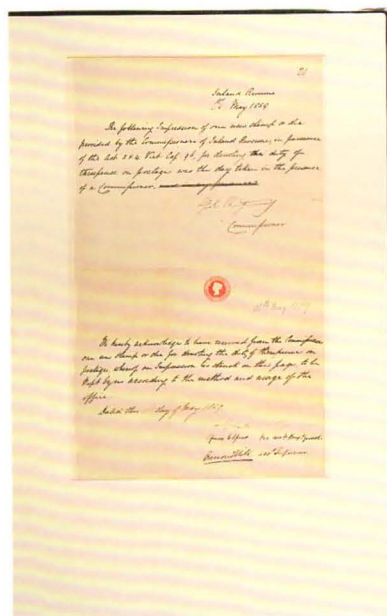 Inland Revenue
May 1859
The following Impression of one new stamp or die
provided by the Commissioners of Inland Revenue, in pursuance
of the act 3 & 4 Vict Cap 96, for denoting the duty of
threepence on postage was this day taken in the presence
of a Commissioner.
Commissioner
May 1859
We hereby acknowledge to have received from the Commissioners
one new stamp or die for denoting the duty of threepence on
postage, whereof an Impression is struck on this page, to be
kept by us according to the method and usage of the
office.
Dated this day of May 1859